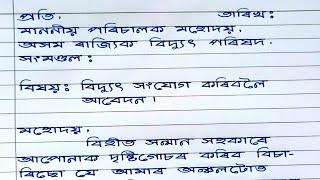 প্ৰতি, তাৰিখঃ
মাননীয় পৰিচালক মহোদয়,
অসম ৰাজ্যিক বিদ্যুৎ পৰিষদ.
সংমণ্ডলঃ
বিষয়ঃ বিদ্যুৎ সংযোগ কৰিবলৈ
আবেদন।
মহোদয়,
বিহীত সন্মান সহকাৰে
আপোনাক দৃষ্টিগোচৰ কৰিব বিচা-
ৰিছো যে আমাৰ অঞ্চলটোত